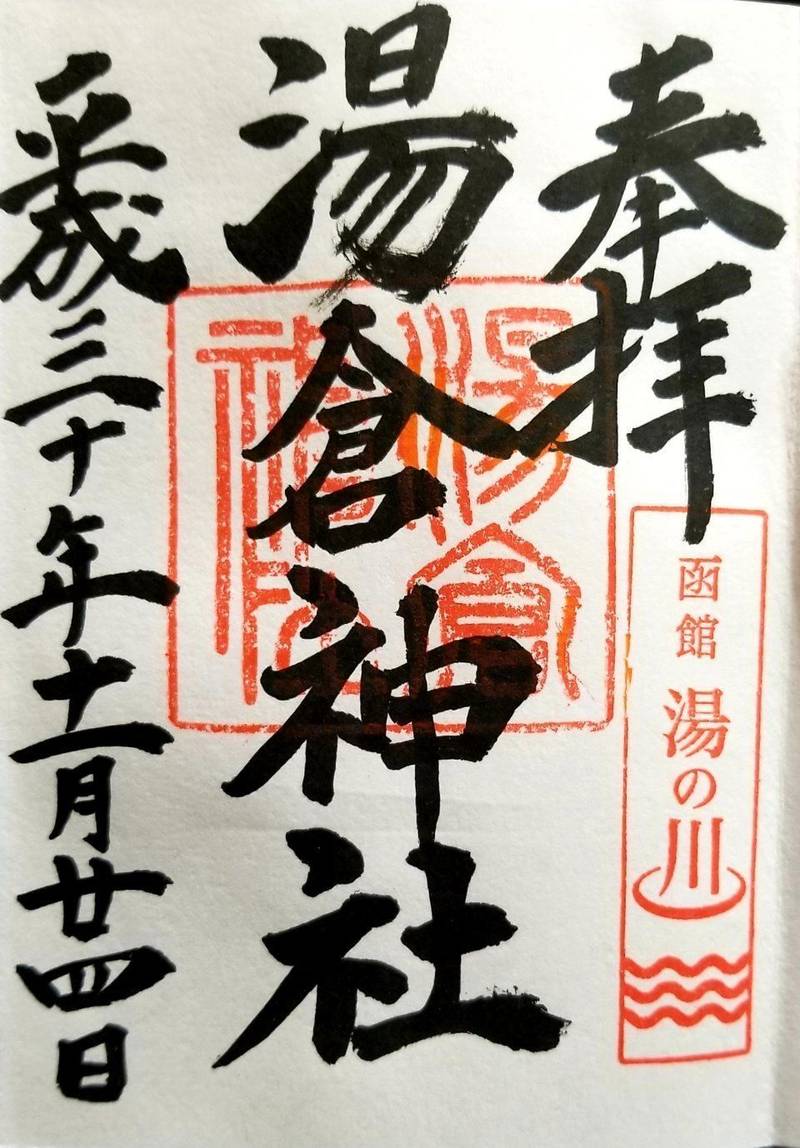 奉拝
函館 湯の川
湯倉神社
湯倉神社
平成三十年十一月廿四日